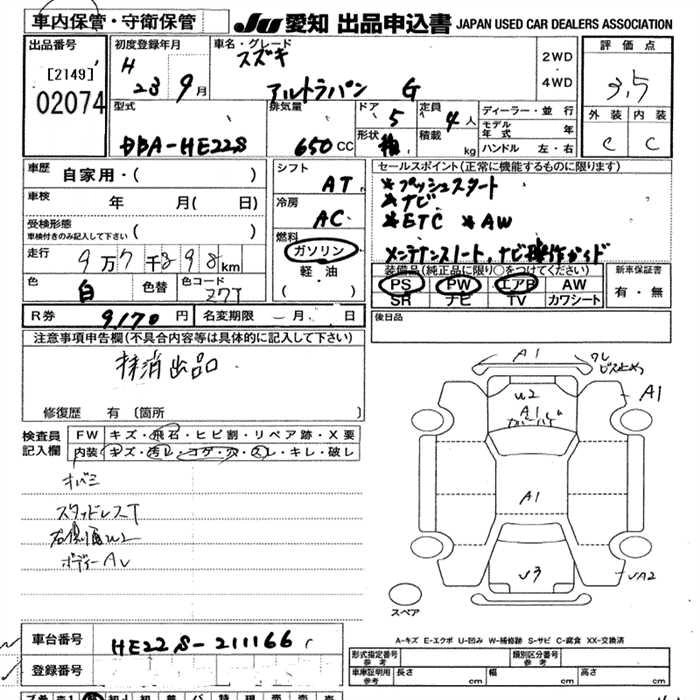 車内保管・守衛保管
JU 愛知 出品申込書 JAPAN USED CAR DEALERS ASSOCIATION
出品番号
[2149]
02074
初度登録年月
H 23 9月
車名・グレード
スズキ
アルトラパン G
2WD
4WD
評価点
3.5
外装 内装
C C
型式
DBA-HE22S
排気量
650 CC
ドア 5
形状 箱
定員 4 人
積載 kg
ディーラー・並行
モデル年式 年
ハンドル 左・右
車歴
自家用・( )
車検
年 月( 日)
受検形態
車検付きのみ記入して下さい ( )
走行
9万7千398km
色 白
色替
色コード Z7T
シフト
AT
冷房
AC
燃料
ガソリン
軽・油
( )
セールスポイント(正常に機能するものに限ります)
*プッシュスタート
*ナビ
*ETC *AW
メンテナンスノート,ナビ操作ガイド
装備品(純正品に限り○をつけてください)
PS PW エアB AW
SR ナビ TV カワシート
新車保証書
有・無
R券 9170円
名変期限 月 日
後日品
注意事項申告欄(不具合内容等は具体的に記入して下さい)
抹消出品
修復歴 有 〔箇所 〕
検査員記入欄
FW キズ・飛石・ヒビ割・リペア跡・X要
内装 キズ・汚レ・コゲ・穴・スレ・キレ・破レ
スタッドレスT
右側面U2
A1
ワレ
ビス止め
U2
A1
A1
A1
U3
UA2
スペア
A-キズ E-エクボ U-凹み W-補修跡 S-サビ C-腐食 XX-交換済
車台番号
HE22S-211166
登録番号
形式指定番号 参考
類別区分番号 参考
車庫証明用 参考
長さ cm
幅 cm
高さ cm